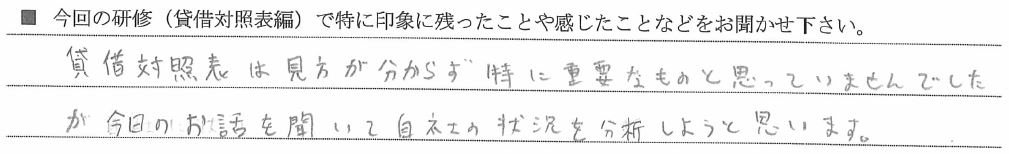 ■ 今回の研修（貸借対照表編）で特に印象に残ったことや感じたことなどをお聞かせ下さい。
貸借対照表は見方が分からず特に重要なものと思っていませんでした
が今日のお話を聞いて自社の状況を分析しようと思います。